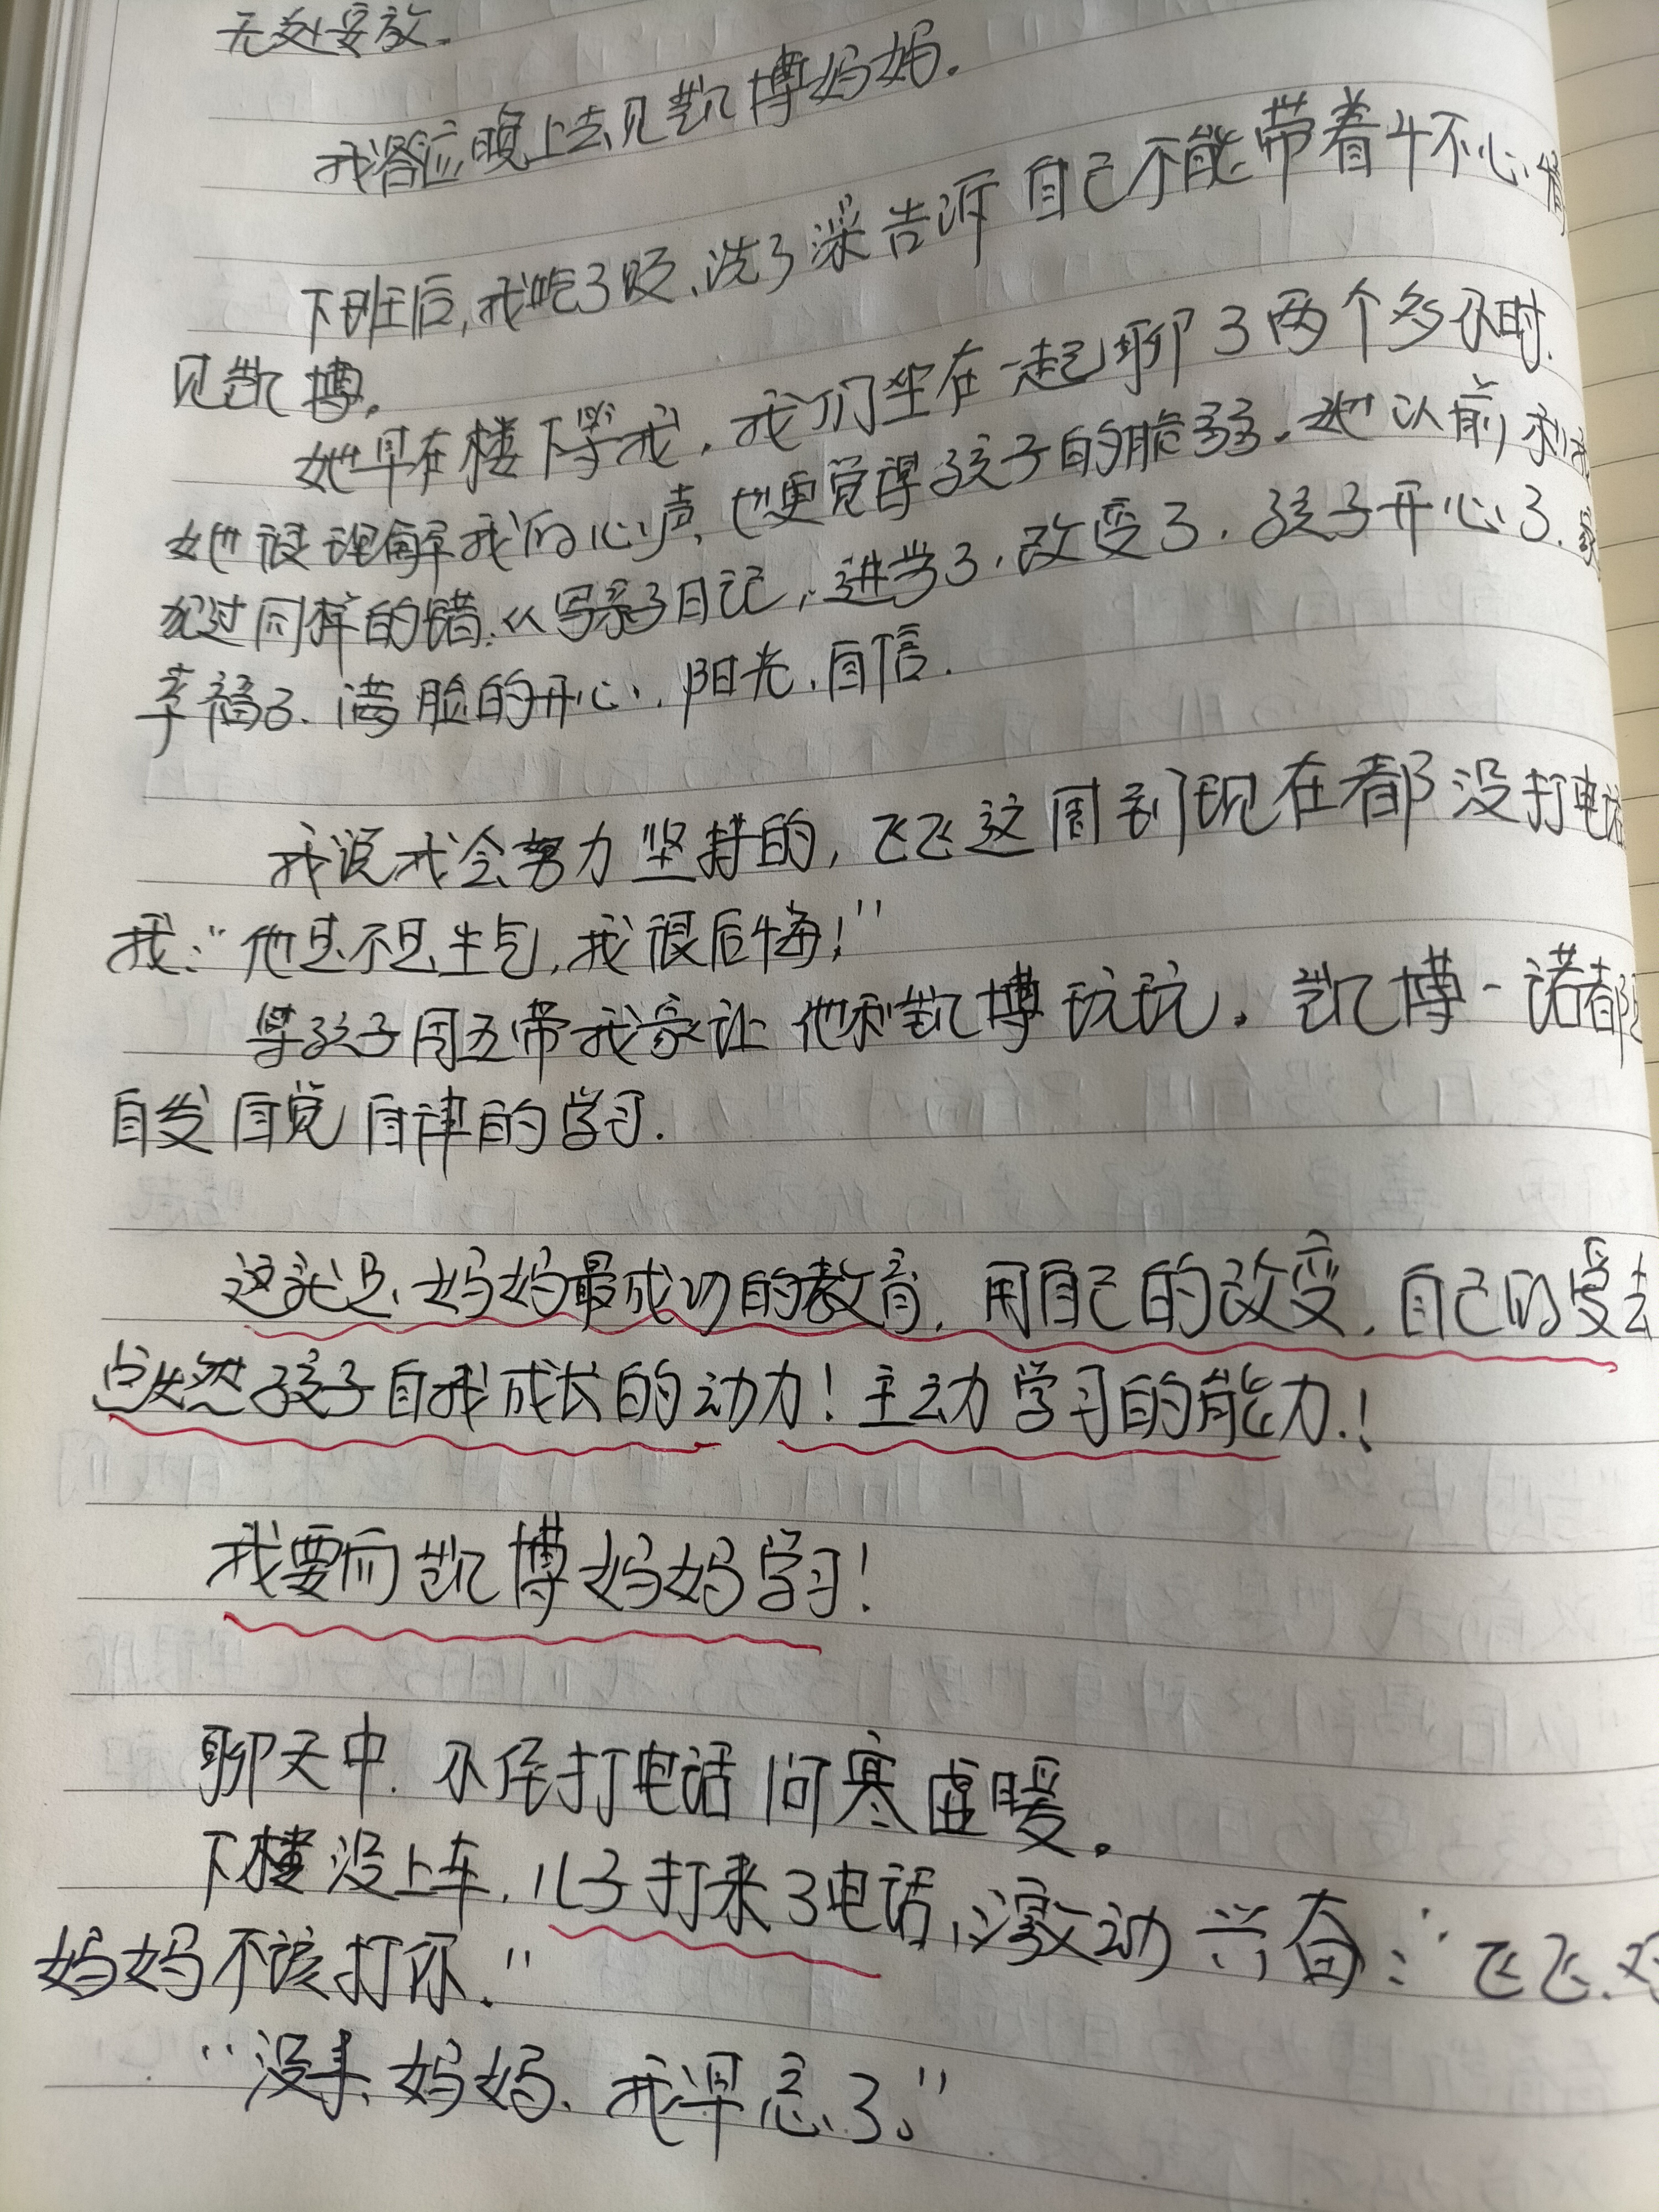 无处安放.
我答应晚上去见凯博妈妈.
下班后,我吃了饭、洗了澡告诉自己不能带着坏心情
见凯博.
她早在楼下等我.我们坐在一起聊了两个多小时.
她很理解我的心声,也更觉得孩子的脆弱.她以前和我
犯过同样的错.从写亲子日记,进步了,改变了.孩子开心了.家
幸福了.满脸的开心.阳光.自信.
我说我会努力坚持的,飞飞这周到现在都没打电话
我:"他是不是生气,我很后悔!"
等孩子周五带我家让他和凯博玩玩.凯博一诺都是
自发自觉自律的学习.
这就是妈妈最成功的教育.用自己的改变.自己的爱去
点燃孩子自我成长的动力!主动学习的能力!
我要向凯博妈妈学习!
聊天中.小侄打电话问寒虚暖.
下楼没上车.儿子打来了电话,激动兴奋:"飞飞.对
妈妈不该打你."
"没事,妈妈.我早忘了."